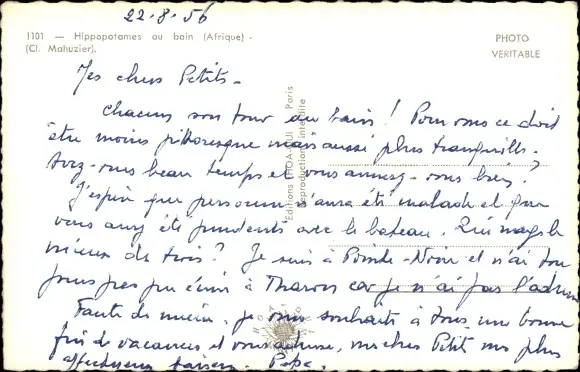 22-8-56
1101 — Hippopotames au bain (Afrique) -
(Cl. Mahuzier).
PHOTO
VERITABLE
Mes chers Petits -
chacun son tour au bain ! Pour vous ce doit
être moins pittoresque mais aussi plus tranquille.
Avez-vous beau temps et vous amusez-vous bien ?
J'espère que personne n'aura été malade et que
vous avez été prudents avec le bateau. Qui nage le
mieux de trois ? Je suis à Pointe-Noire et n'ai tou
jours pas pu écrire à Tharon car je n'ai pas l'adresse
Faute de mieux, je vous souhaite à tous une bonne
fin de vacances et vous adresse, mes chers Petits mes plus
affectueux baisers. Papa.
Editions HOA-QUI Paris
Reproduction interdite